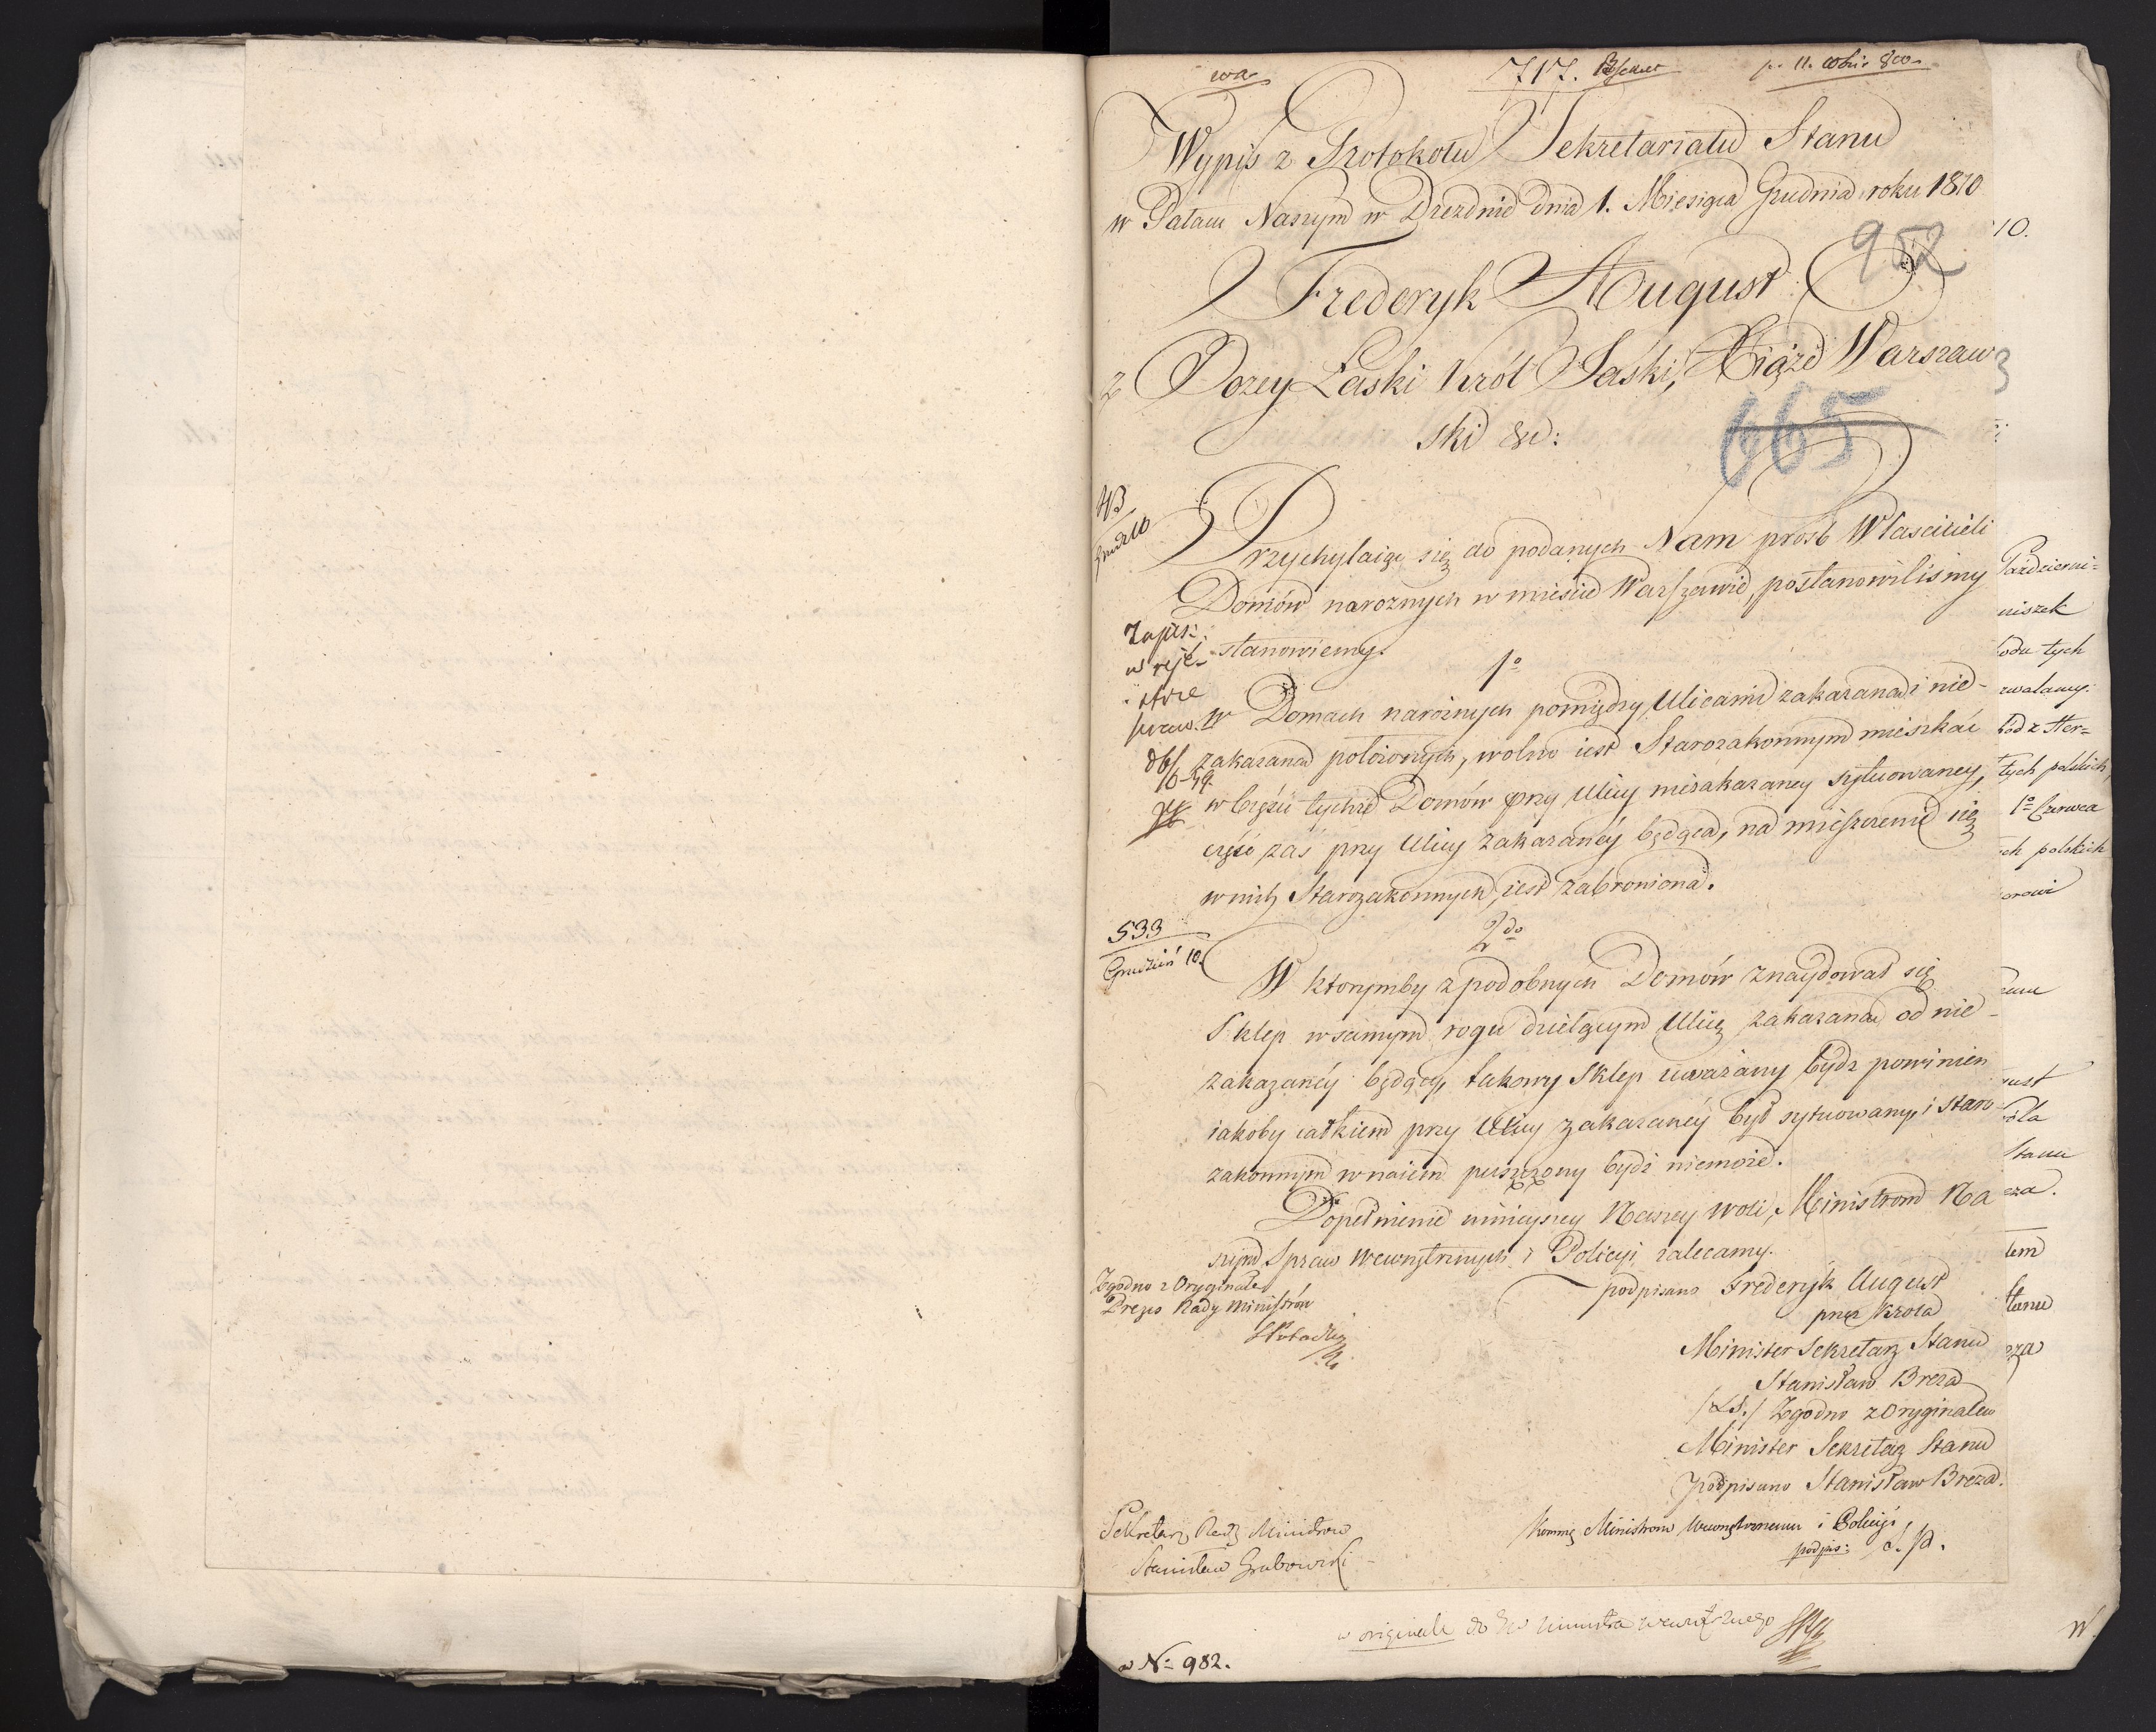 717.
Wypis z Protokołu Sekretariatu Stanu
w Pałacu Naszym w Dreznie dnia 1. Miesiąca Grudnia roku 1810
10.
952
Frederyk August
z Bożey Łaski Król Saski, Xiąże Warszaw
ski &c:
665
Przychylaiąc się do podanych Nam prośb Właścicieli
Domów narożnych w mieście Warszawie, postanowiliśmy
stanowiemy.
1o
Zapis:
w reje-
strze
w Domach narożnych pomiędzy Ulicami zakazaną i nie-
zakazaną położonych, wolno iest Starozakonnym mieszkać
w Części tychże Domów przy Ulicy niezakazaney sytuowaney,
część zaś przy Ulicy zakazanéy będąca, na mieszczenie się
w nich Starozakonnych, iest zabroniona.
533
Grudzień 10.
2do
W którymby z podobnych Domów znaydował się
Sklep w samym rogu dzielącym Ulicę zakazaną od nie-
zakazanéy będący, takowy Sklep uważany bydź powinien
iakoby całkiem przy Ulicy zakazanéy był sytuowany, i staro-
zakonnym w naiem puszczony bydź niemoże.
Dopełnienie ninieyszey Naszey woli, Ministrom Na
szym Spraw Wewnętrznych i Policyi zalecamy.
Zgodno z Oryginałem
Prezes Rady Ministrów
podpisano Frederyk August
przez Króla
Minister Sekretarz Stanu
Stanisław Breza
/LS./ Zgodno z Oryginałem
Minister Sekretarz Stanu
podpisano Stanisław Breza.
Sekretarz Rady Ministrów
Stanisław Grabowski
Ministrom Wewnętrznemu i Policyi
podpis:
w originale do Ministra wewnętrznego
N= 982.
Październi=
niszek
odu tych
zwalamy:
tych polskich
1o Czerwca
ch polskich
Stanu